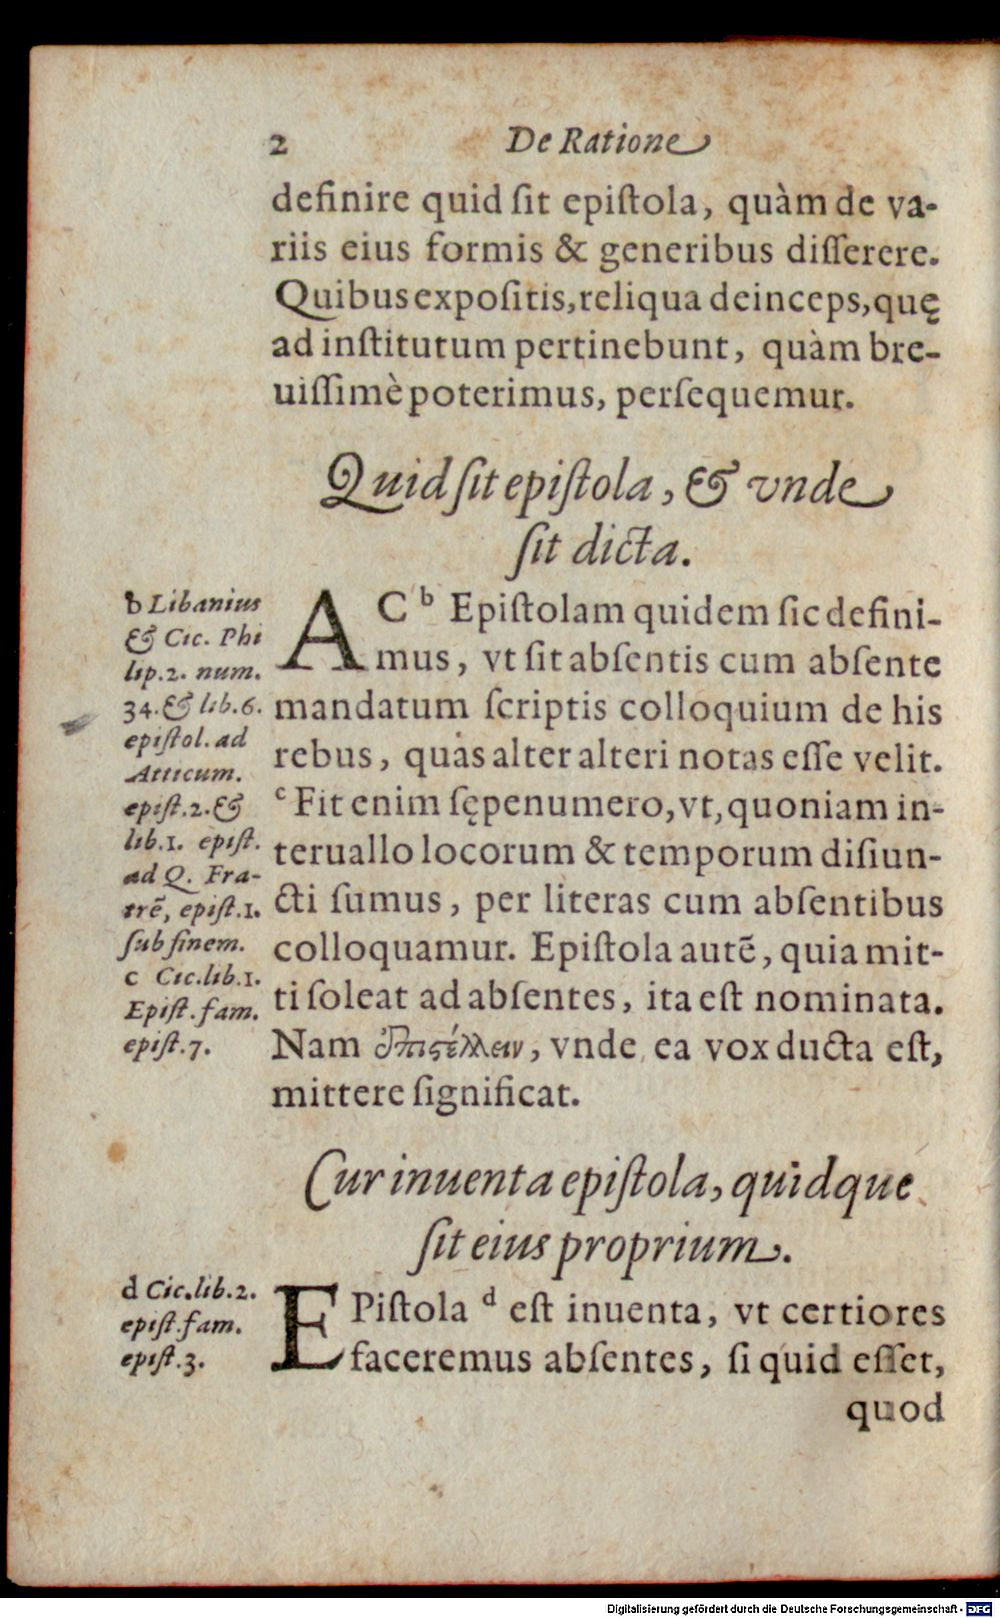 2 De Ratione
definire quid ſit epiſtola, quàm de va-
riis eius formis & generibus diſſerere.
Quibus expoſitis, reliqua deinceps, quę
ad inſtitutum pertinebunt, quàm bre-
uiſſimè poterimus, perſequemur.
Quid ſit epiſtola, & vnde
ſit dicta.
AC b Epiſtolam quidem ſic defini-
mus, vt ſit abſentis cum abſente
mandatum ſcriptis colloquium de his
rebus, quas alter alteri notas eſſe velit.
c Fit enim ſępenumero, vt, quoniam in-
teruallo locorum & temporum diſiun-
cti ſumus, per literas cum abſentibus
colloquamur. Epiſtola autē, quia mit-
ti ſoleat ad abſentes, ita eſt nominata.
Nam ἐπιστέλλειν, vnde ea vox ducta eſt,
mittere ſignificat.
b Libanius
& Cic. Phi
lip.2. num.
34. & lib.6.
epiſtol. ad
Atticum.
epiſt.2. &
lib.1. epiſt.
ad Q. Fra-
trē, epiſt.1.
ſub finem.
c Cic.lib.1.
Epiſt. fam.
epiſt.7.
Cur inuenta epiſtola, quidque
ſit eius proprium.
EPiſtola d eſt inuenta, vt certiores
faceremus abſentes, ſi quid eſſet,
quod
d Cic.lib.2.
epiſt.fam.
epiſt.3.
Digitalisierung gefördert durch die Deutsche Forschungsgemeinschaft - DFG